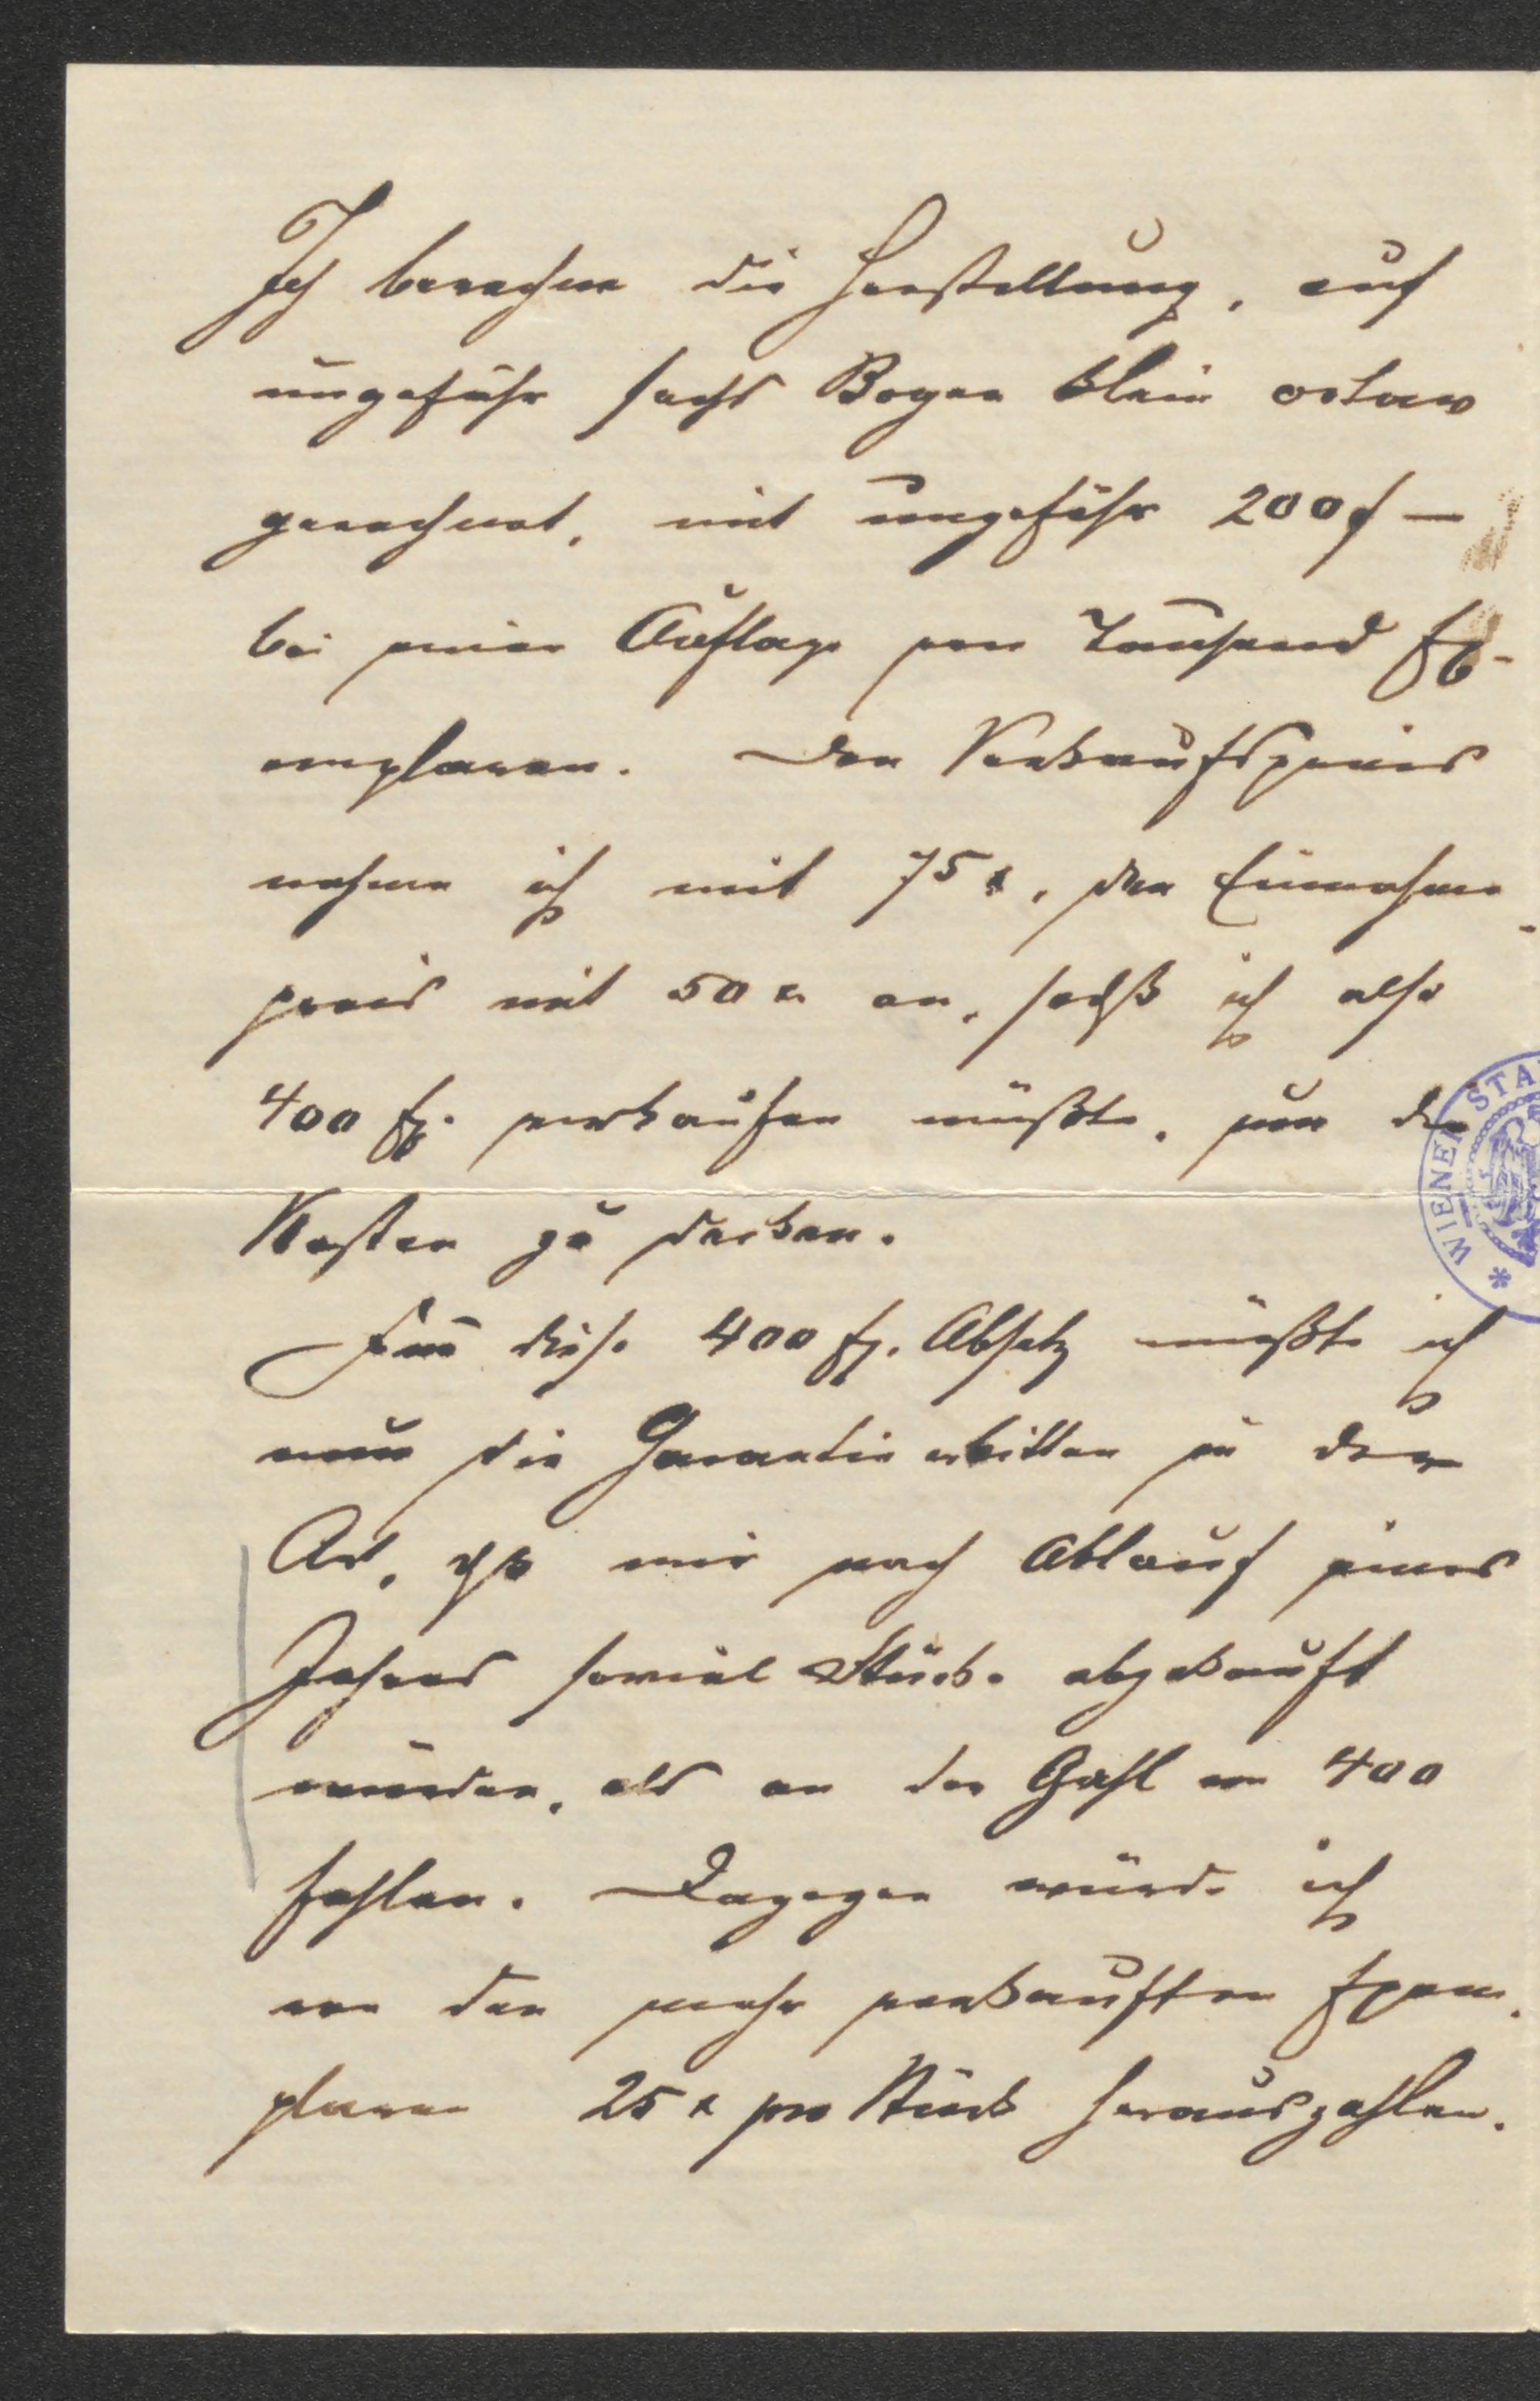 Ich berechne die Herstellung, auf
ungefähr sechs Bogen klein octav
gerechnet, mit ungefähr 200 f –
bei einer Auflage von Tausend Ex-
emplaren. Den Verkaufspreis
nehme ich mit 75 x, den Einnahme-
preis mit 50 x an, sodß ich also
400 Ex. verkaufen müßte, um die
Kosten zu decken.
Für diese 400 Ex. Absatz müßte ich
nun die Garantie erbitten in der
Art, dß mir nach Ablauf eines
Jahres soviel Stücke abgekauft
würden, als an der Zahl von 400
fehlen. Dagegen würde ich
von den mehr verkauften Exem-
plaren 25 x pro Stück herauszahlen.
WIENER STA